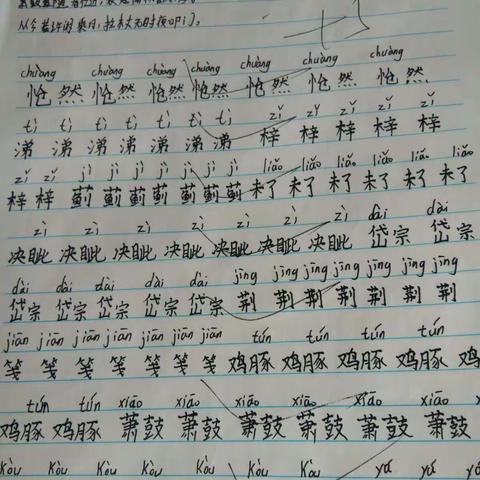 从今若许闲乘月,拄杖无时夜叩门。
chuàng chuàng chuàng chuàng chuàng chuàng chuàng
怆然 怆然 怆然 怆然 怆然 怆然 怆然
tì tì tì tì tì tì tì zǐ zǐ zǐ zǐ zǐ
涕 涕 涕 涕 涕 涕 涕 梓 梓 梓 梓 梓
zǐ zǐ jì jì jì jì jì jì jì liǎo liǎo liǎo liǎo liǎo liǎo
梓 梓 蓟 蓟 蓟 蓟 蓟 蓟 蓟 未了 未了 未了 未了 未了 未了
zì zì zì zì zì zì zì dài dài
决眦 决眦 决眦 决眦 决眦 决眦 决眦 岱宗 岱宗
dài dài dài dài dài jīng jīng jīng jīng jīng jīng jīng
岱宗 岱宗 岱宗 岱宗 岱宗 荆 荆 荆 荆 荆 荆 荆
jiān jiān jiān jiān jiān jiān jiān tún tún tún tún
笺 笺 笺 笺 笺 笺 笺 鸡豚 鸡豚 鸡豚 鸡豚 鸡
tún tún xiāo xiāo xiāo xiāo xiāo xiāo
鸡豚 鸡豚 萧鼓 萧鼓 萧鼓 萧鼓 萧鼓 萧鼓
kòu kòu kòu kòu kòu kòu kòu